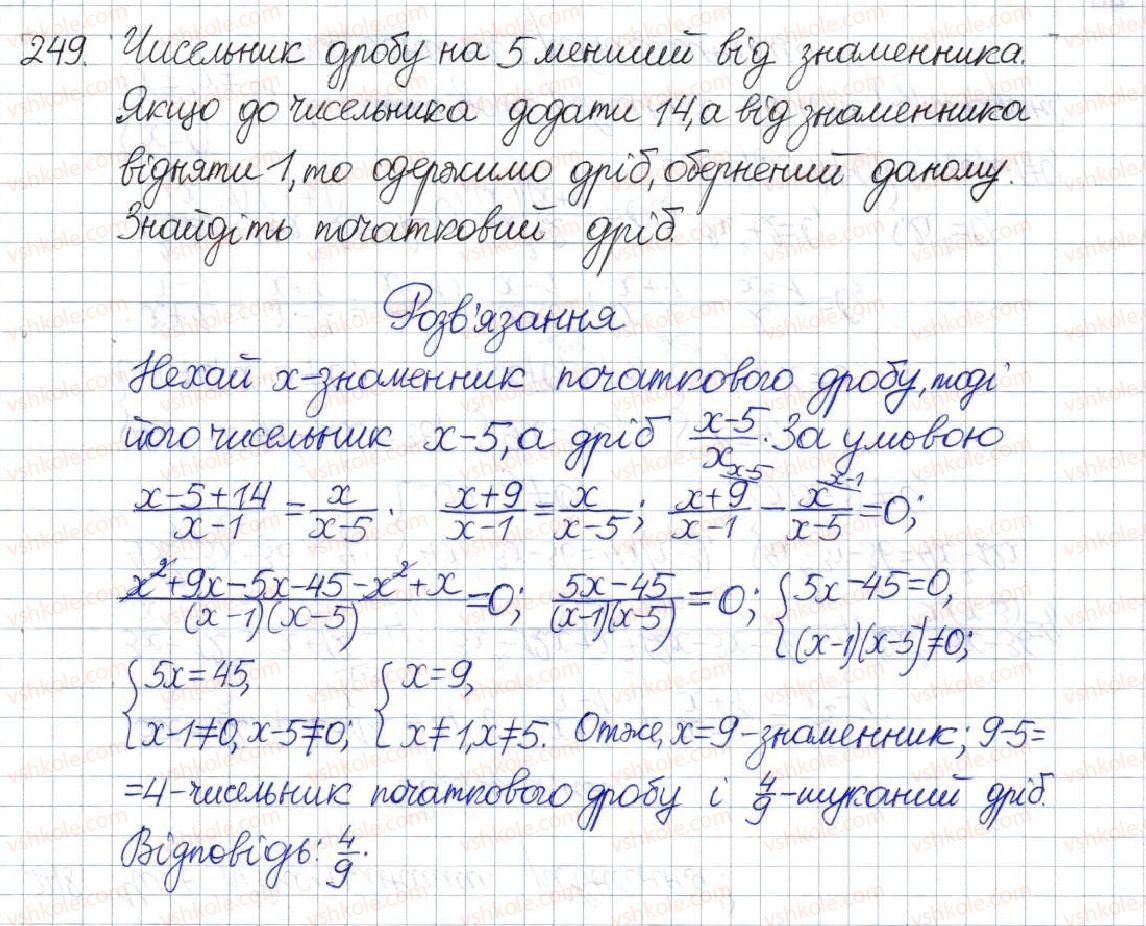 249. Чисельник дробу на 5 менший від знаменника.
Якщо до чисельника додати 14, а від знаменника
відняти 1, то одержимо дріб, обернений даному.
Знайдіть початковий дріб.
Розв'язання
Нехай x-знаменник початкового дробу, тоді
його чисельник x-5, а дріб (x-5)/x. За умовою
(x-5+14)/(x-1) = x/(x-5). (x+9)/(x-1) = x/(x-5); (x+9)/(x-1) ^(x-5) - x/(x-5) ^(x-1) =0;
(x²+9x-5x-45-x²+x)/((x-1)(x-5)) =0; (5x-45)/((x-1)(x-5)) =0; { 5x-45=0, (x-1)(x-5)≠0;
{ 5x=45, x-1≠0, x-5≠0; { x=9, x≠1, x≠5. Отже, x=9-знаменник; 9-5=
=4-чисельник початкового дробу і 4/9-шуканий дріб.
Відповідь: 4/9.
vshkole.com